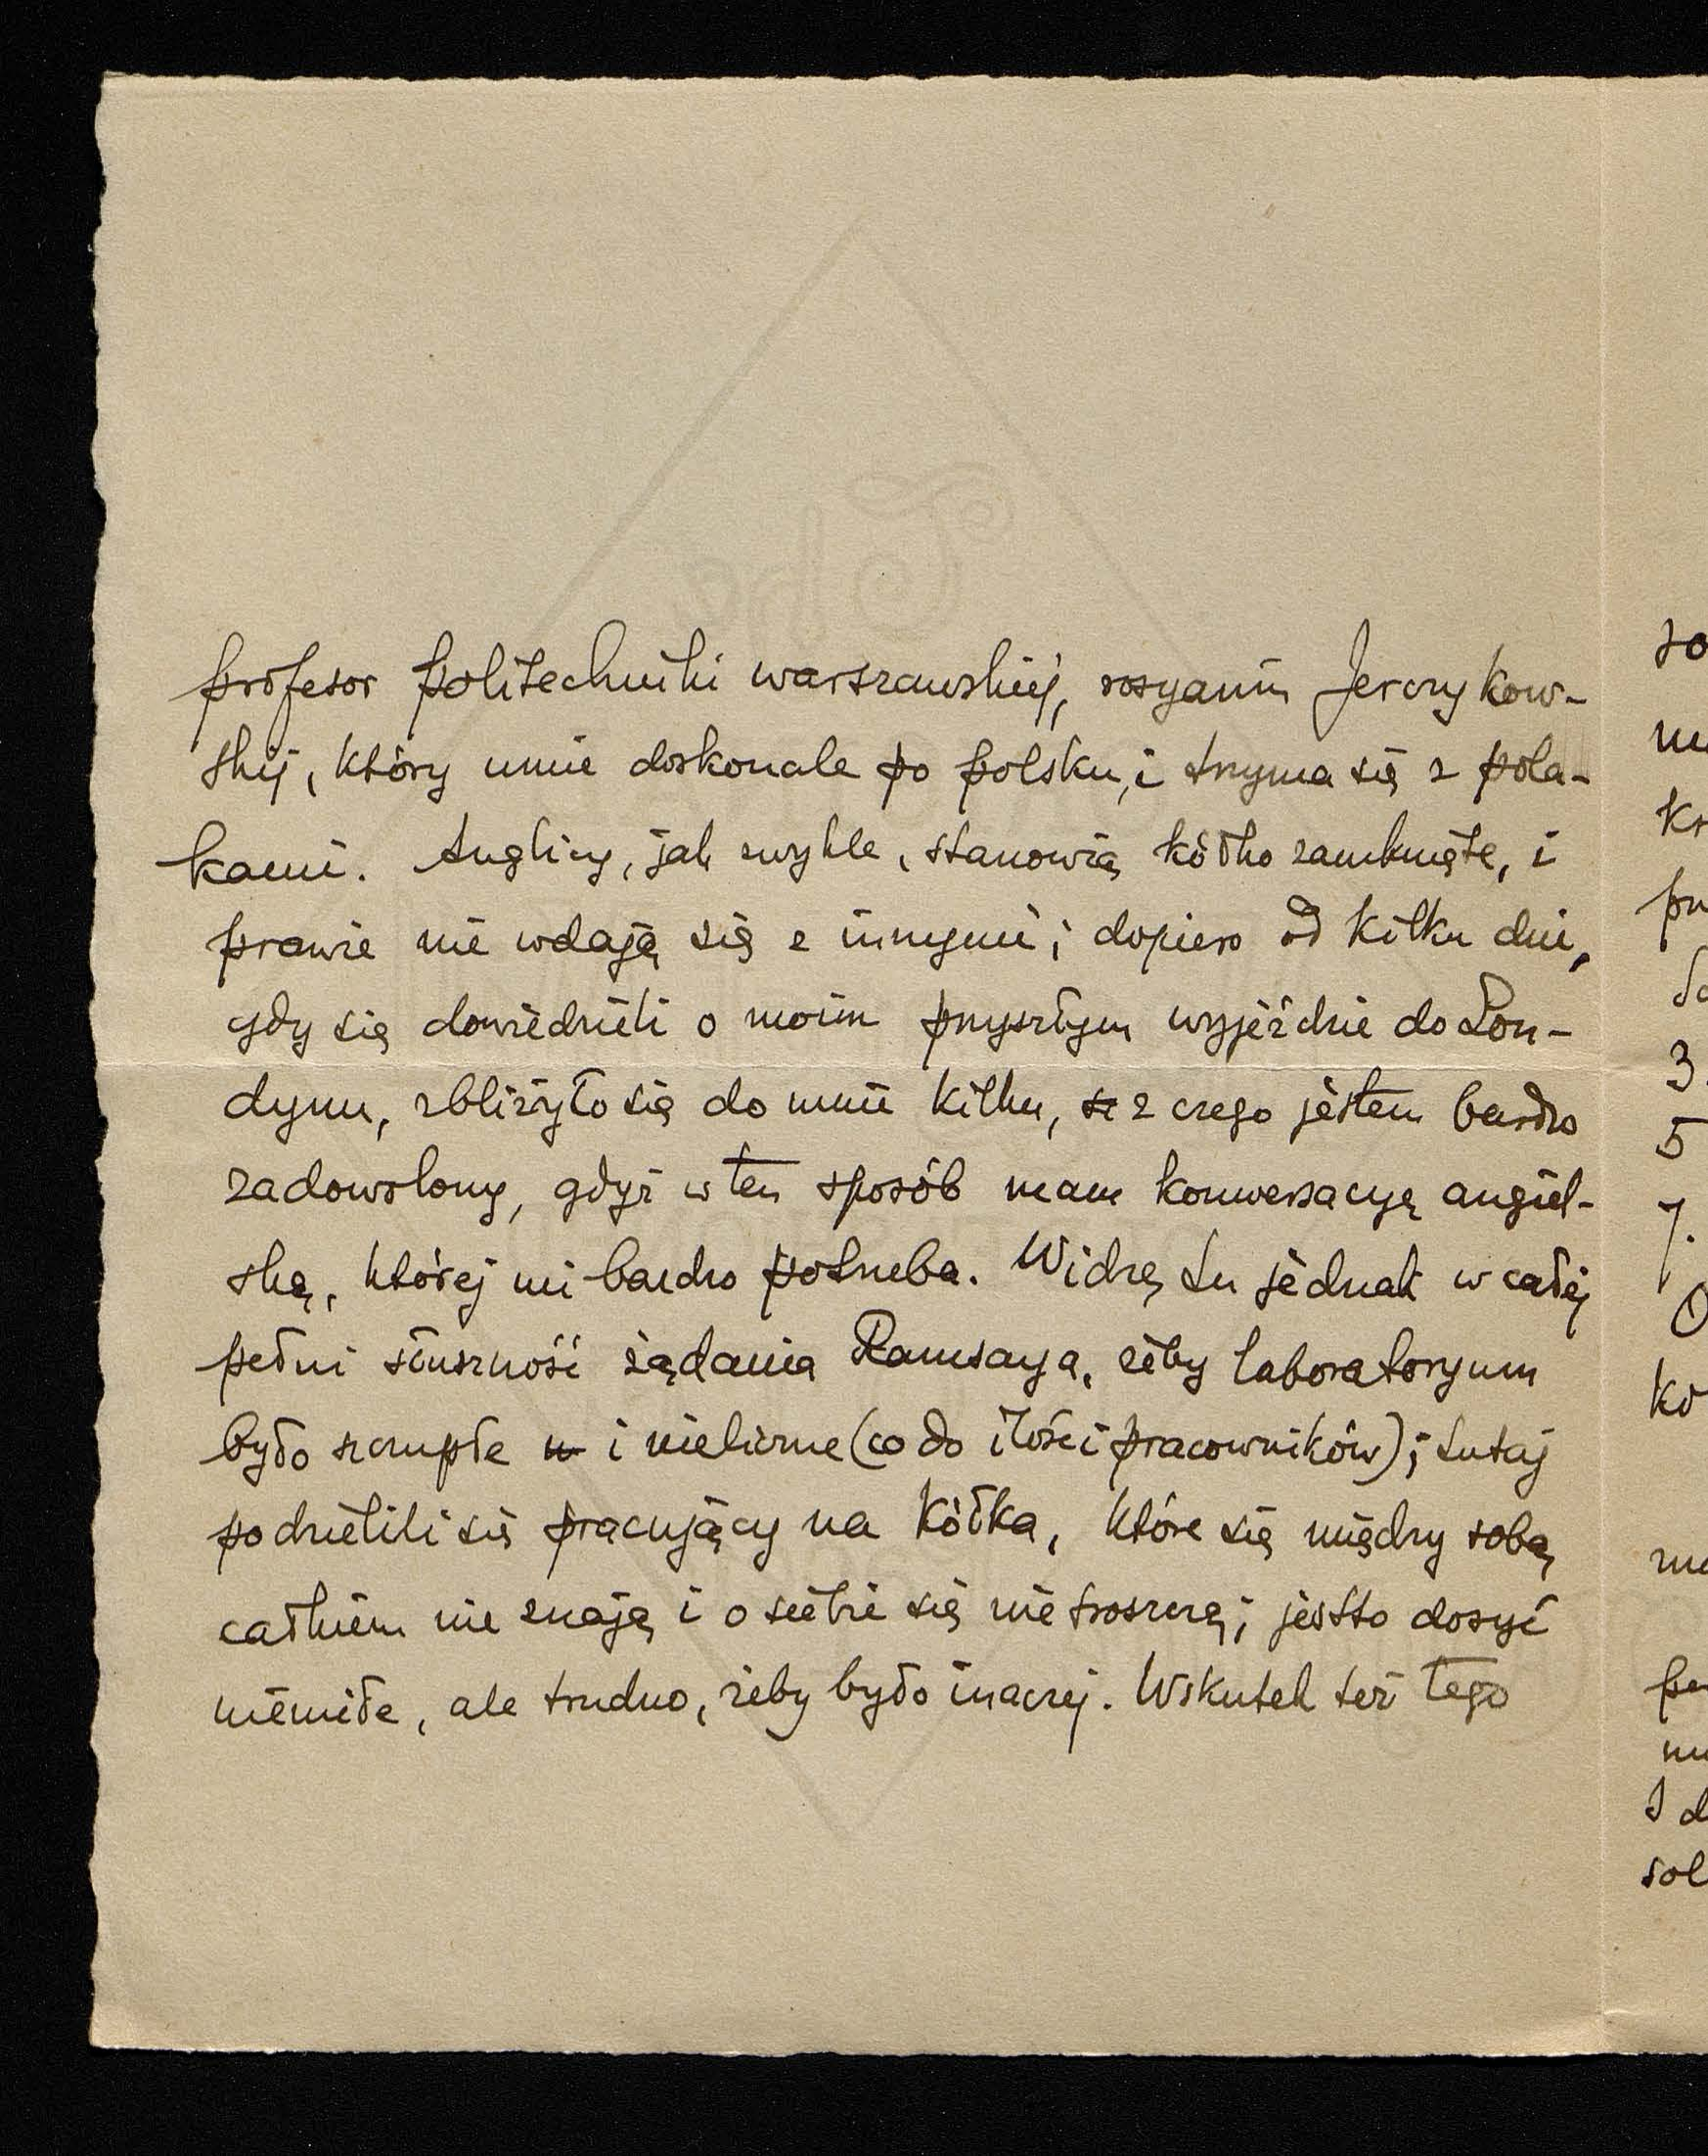 profesor politechniki warszawskiej, rosyanin Jerczykow-
skij, który umie doskonale po polsku, i trzyma się z pola-
kami. Anglicy, jak zwykle, stanowią kółko zamknięte, i
prawie nie wdają się z innymi; dopiero od kilku dni,
gdy się dowiedzieli o moim przyszłym wyjeździe do Lon-
dynu, zbliżyło się do mnie kilku, z czego jestem bardzo
zadowolony, gdyż w ten sposób mam konwersacyę angiel-
ską, której mi bardzo potrzeba. Widzę tu jednak w całej
pełni słuszność żądania Ramsaya, żeby laboratoryum
było szczupłe i nieliczne (co do ilości pracowników); tutaj
podzielili się pracujący na kółka, które się między sobą
całkiem nie znają i o siebie się nie troszczą; jestto dosyć
niemiłe, ale trudno, żeby było inaczej. Wskutek też tego
so
kr
3
5
7.
O
kó
sol